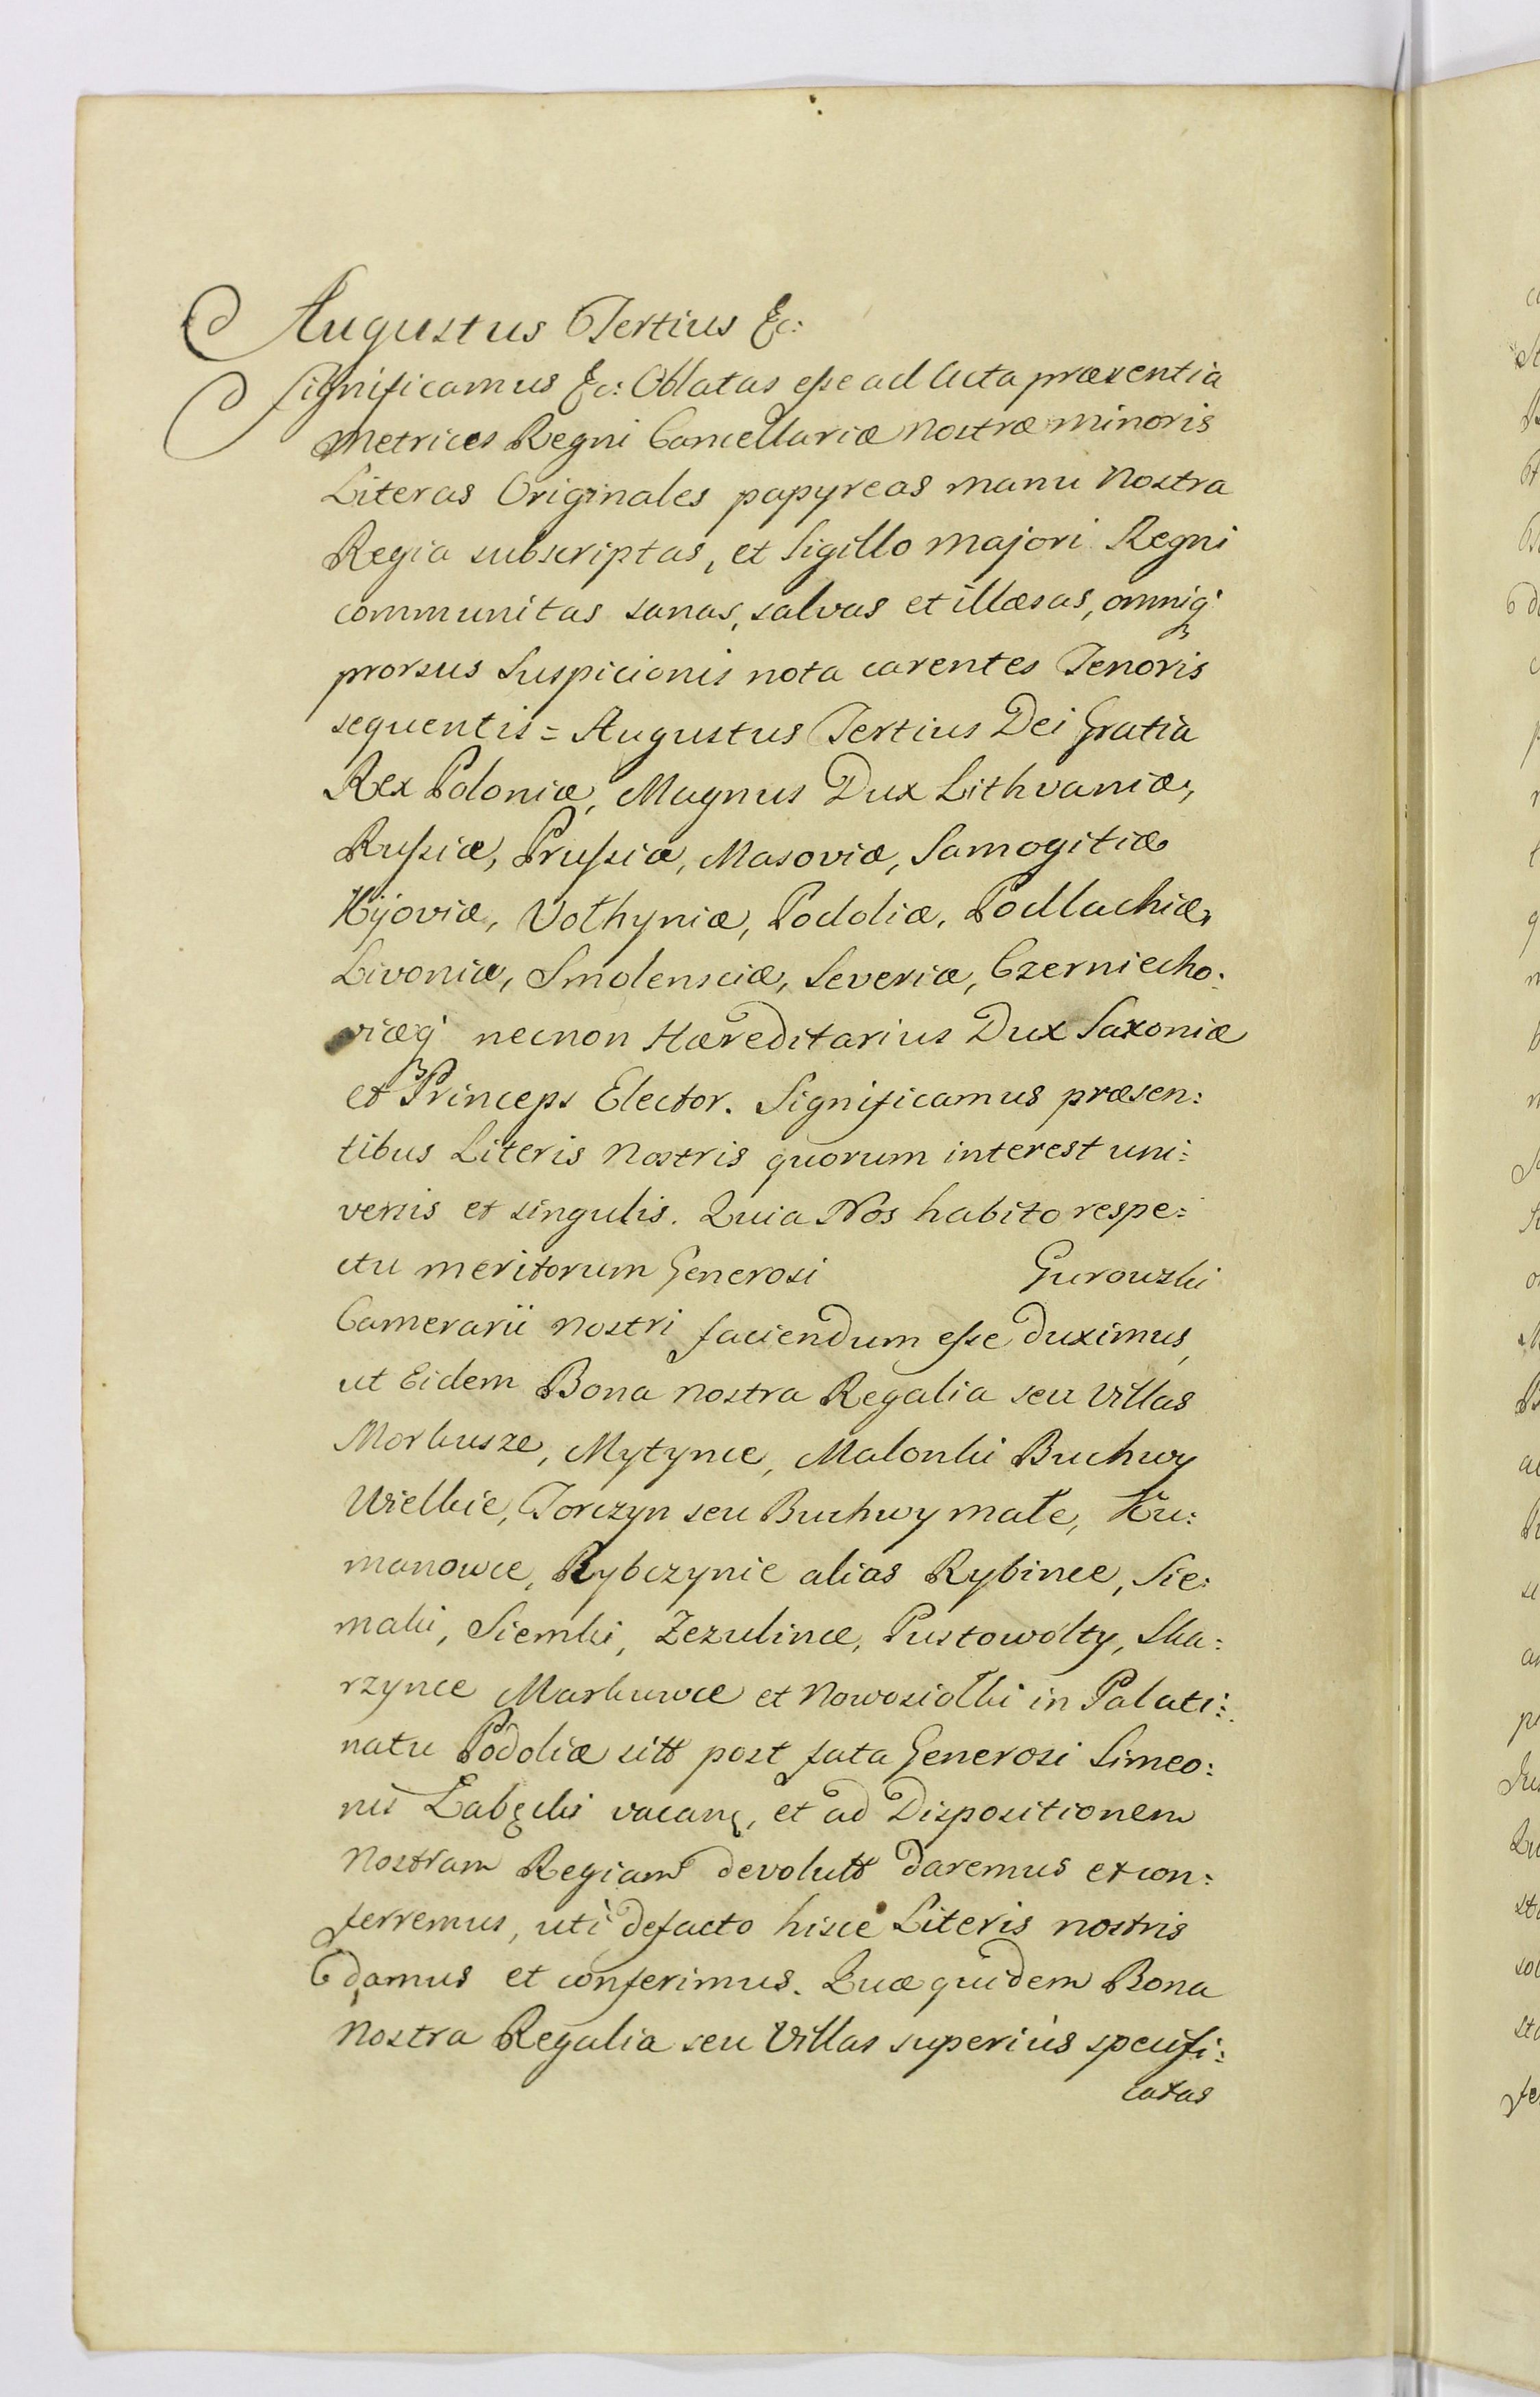 Augustus Tertius &c:
Significamus &c: Oblatas esse ad Acta præsentia
Metrices Regni Cancellariæ nostræ minoris
Literas Originales papyreas manu Nostra
Regia subscriptas, et Sigillo majori Regni
communitas sanas, salvas et illæsas, omniq;
prorsus Suspicionis nota carentes Tenoris
sequentis = Augustus Tertius Dei Gratia
Rex Poloniæ, Magnus Dux Lithvaniæ,
Russiæ, Prussiæ, Masoviæ, Samogitiæ
Kijoviæ, Volhyniæ, Podoliæ, Podlachiæ,
Livoniæ, Smolensciæ, Severiæ, Czerniecho:
viæq; necnon Hæreditarius Dux Saxoniæ
et Princeps Elector. Significamus præsen:
tibus Literis Nostris quorum interest uni:
versis et singulis. Quia Nos habito respe:
ctu meritorum Generosi Gurowski
Camerarii nostri faciendum esse duximus,
ut Eidem Bona nostra Regalia seu Villas
Morkusze, Mytynce, Malonki Buchwy
Wielkie, Torczyn seu Buchwy małe, Ku:
manowce, Rybczynie alias Rybince, Sie:
maki, Siemki, Zezulince, Pustowolty, Ska:
rzynce Markuwce et Nowosiołki in Palati:
natu Podoliæ sitt post fata Generosi Simeo:
nis Łabęcki vacanę, et ad Dispositionem
Nostram Regiam devolutt daremus et con:
ferremus, uti defacto hisce Literis nostris
damus et conferimus. Quæ quidem Bona
Nostra Regalia seu Villas superius specifi:
catas